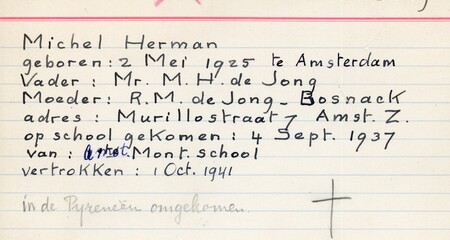 Michel Herman
geboren: 2 Mei 1925 te Amsterdam
Vader: Mr. M. H. de Jong
Moeder: R.M. de Jong - Bosnack
adres: Murillostraat 7 Amst. Z.
op school gekomen: 4 Sept. 1937
van: Mont. school
vertrokken: 1 Oct. 1941
in de Pyreneën omgekomen.